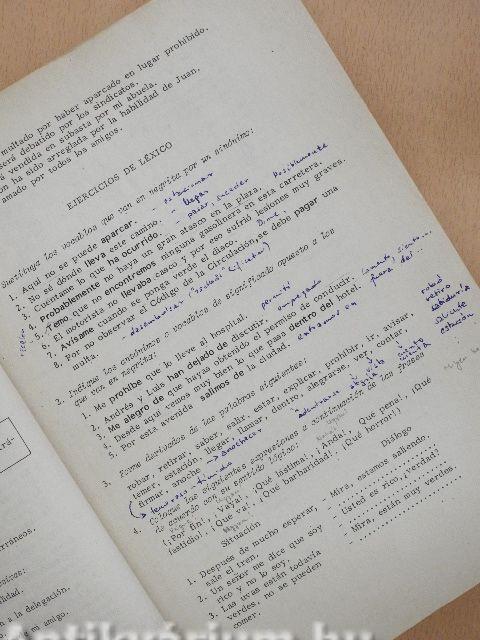 multado por haber aparcado en lugar prohibido.
será debatido por los sindicatos.
vendida en subasta por mi abuela.
ha sido arreglada por la habilidad de Juan.
amado por todos los amigos.
EJERCICIOS DE LÉXICO
Sustituya los vocablos que van en negrita por un sinónimo:
1. Aquí no se puede aparcar.
2. No sé dónde lleva este camino. - llegar
3. Cuéntame lo que ha ocurrido. - pasar, suceder
4. Probablemente no haya un gran atasco en la plaza. Posiblemente
5. Temo que no encontremos ninguna gasolinera en esta carretera.
6. El motorista no llevaba casco y por eso sufrió lesiones muy graves.
7. Avísame cuando se ponga verde el disco. Dime
8. Por no observar el Código de la Circulación, se debe pagar una
multa.
2. Indique los antónimos o vocablos de significado opuesto a los
que van en negrita:
1. Me prohíbe que lo lleve al hospital. permite
2. Andrés y Luis han dejado de discutir. empezado
3. Me alegro de que hayas obtenido el permiso de conducir.
4. Desde aquí vemos muy bien lo que pasa dentro del hotel. fuera del
5. Por esta avenida salimos de la ciudad. entramos en
3. Forme derivados de las palabras siguientes:
robar, retirar, saber, salir, estar, explicar, prohibir, ir, avisar,
temer, estación, llegar, llamar, dentro, alegrarse, ver, contar,
firmar, anoche
4. Coloque las siguientes expresiones a continuación de las frases
de acuerdo con su sentido lógico:
(¡Por fin!, ¡Vaya!, ¡Qué lástima!, ¡Anda!, ¡Qué pena!, ¡Qué
fastidio!, ¡Que va!, ¡Qué barbaridad!, ¡Qué horror!)
Situación
Diálogo
1. Después de mucho esperar,
sale el tren.
- Mira, estamos saliendo.
2. Un señor me dice que soy
rico y no lo soy.
- Usted es rico, ¿verdad?
3. Las uvas están todavía
verdes, no se pueden
comer.
- Mira, están muy verdes.
rráneos.
lidad.
n a la delegación.
mi amigo.
Antikvárium.hu